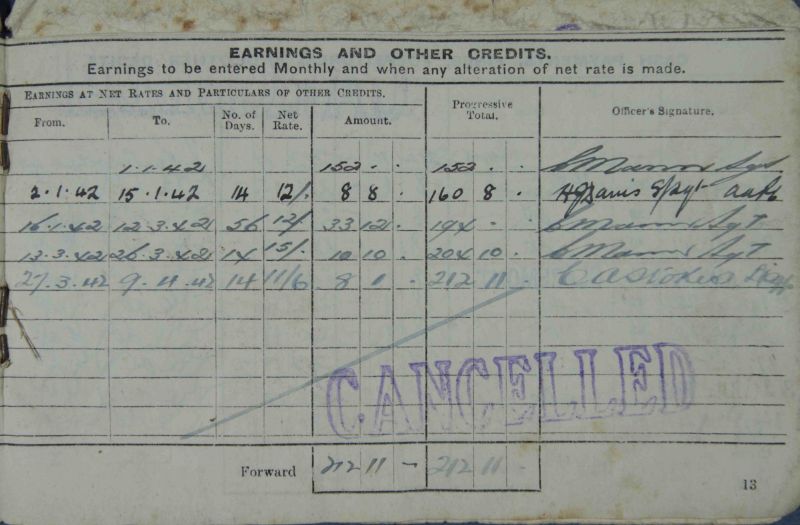 EARNINGS AND OTHER CREDITS.
Earnings to be entered Monthly and when any alteration of net rate is made.
EARNINGS AT NET RATES AND PARTICULARS OF OTHER CREDITS.
From. To. No. of Days. Net Rate. Amount. Progressive Total. Officer's Signature.
1.1.42 152 . . 152 . . Sgt
2.1.42 15.1.42 14 12/. 8 8 . 160 8 . Davis S/Sgt
16.1.42 12.3.42 56 12/. 33 12 . 194 . . Sgt
13.3.42 26.3.42 14 15/. 10 10 . 204 10 . Sgt
27.3.42 9.4.42 14 11/6 8 1 . 212 11 .
CANCELLED
Forward 212 11 - 212 11 .
13